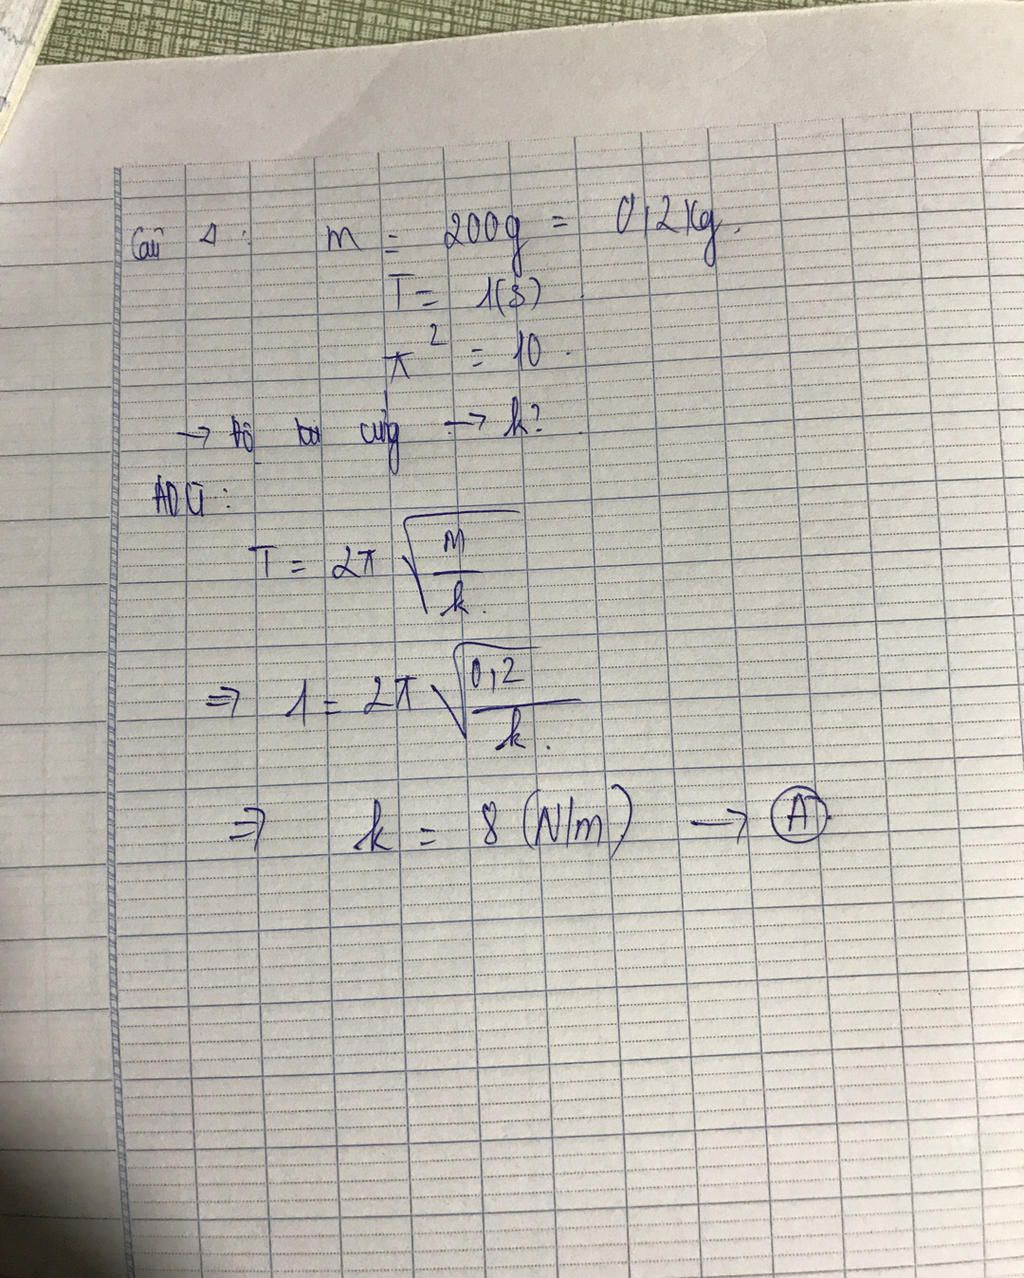 Câu 1: m = 200g = 0,2 kg.
T = 1(s)
π² = 10.
→ Độ cứng → k?
ADCT:
T = 2π √(m/k).
⇒ 1 = 2π √(0,2/k).
⇒ k = 8 (N/m) → A.